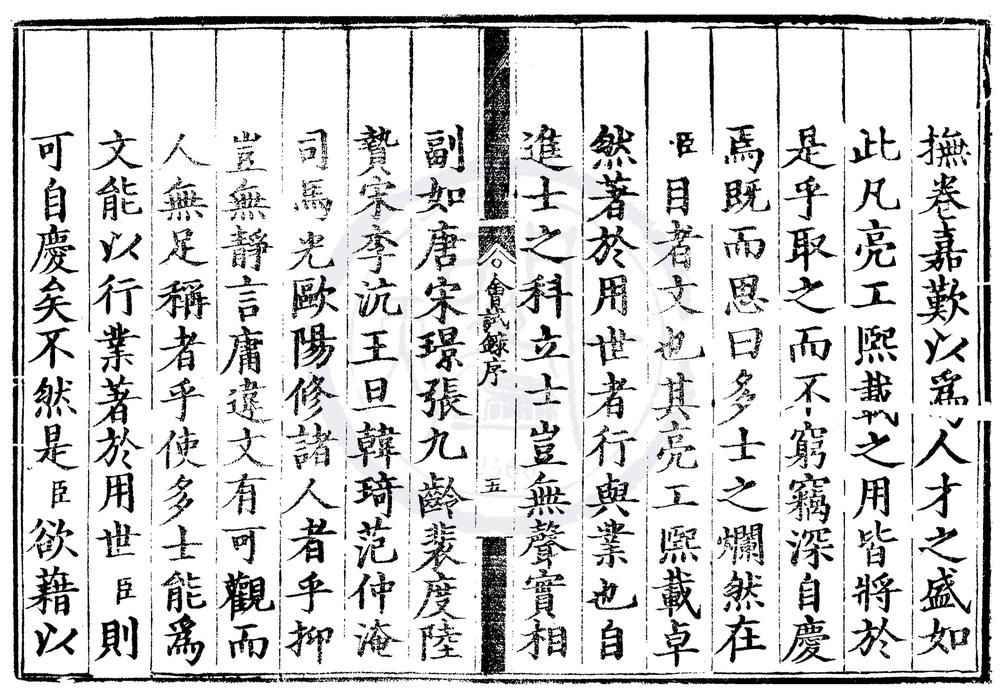 撫卷嘉歎以爲人才之盛如
此凡亮工熙載之用皆將於
是乎取之而不窮竊深自慶
焉既而思曰多士之爛然在
臣目者文也其亮工熙載卓
然著於用世者行與業也自
進士之科立士豈無聲實相
會試錄序
五
副如唐宋璟張九齡裴度陸
贄宋李沆王旦韓琦范仲淹
司馬光歐陽修諸人者乎抑
豈無靜言庸違文有可觀而
人無足稱者乎使多士能爲
文能以行業著於用世臣則
可自慶矣不然是臣欲藉以